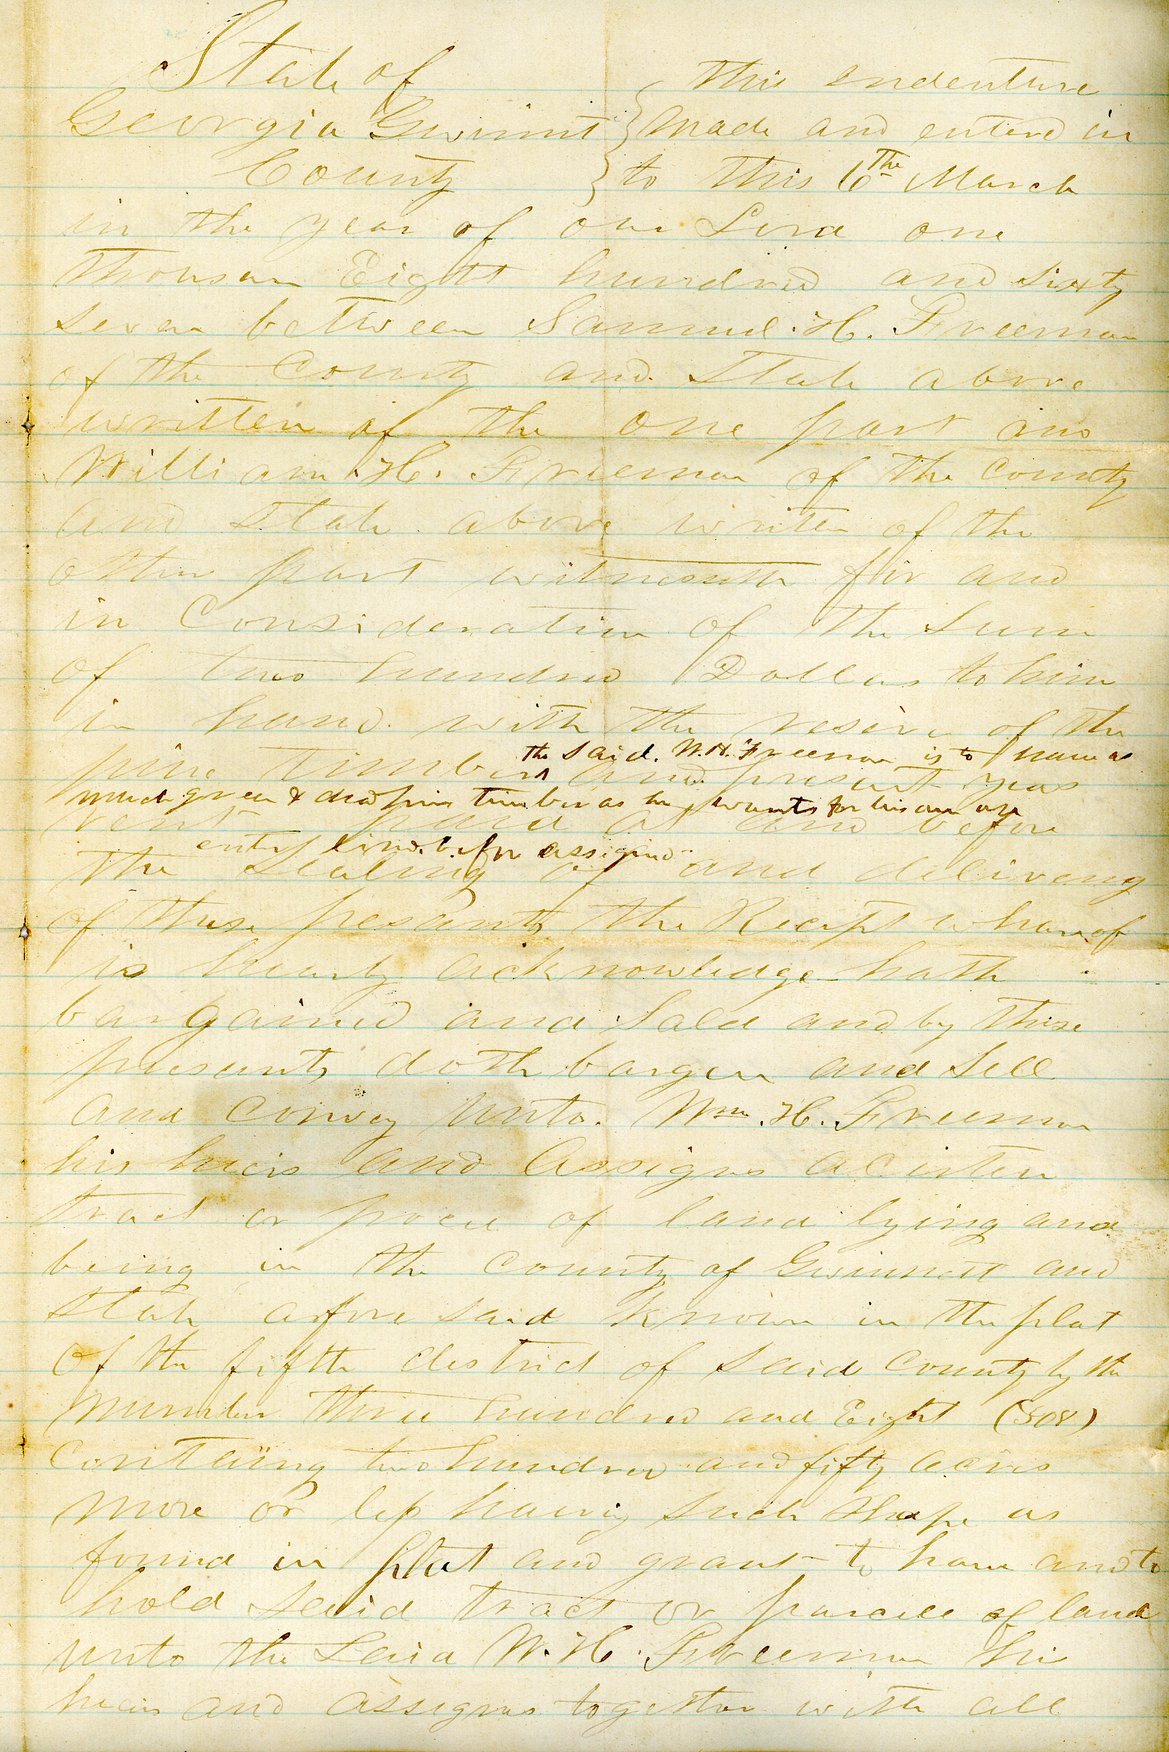 State of
Georgia Gwinnit
County
This endenture
Made and entired in
to this 6th March
in the year of our Lord one
thousan Eight hundred and sixty
seven between Samuel. H. Freeman
of the County and State above
written of the one part and
William H. Freeman of the County
and State above writen of the
other part witnesseth for and
in Consideration of the Sum
of two hundred Dollas to him
in hand with the reserve of the
the said. W.H. Freeman is to have as
pine timber and present years
much green & dead pine timber as he wants for his own use
rent paid at and before
entf lind. befor assigned
the sealing of and delivery
of these presants the Recept whareof
is hearby acknowledge hath
bargained and Sald and by these
presants doth bargen and Sell
and convey unto. Wm. H. Freeman
his heirs and assigns a cirten
tract or parcel of land lying and
being in the County of Gwinnett and
State afore said known in the plat
of the fifth district of said County by the
number three hundred and Eight (308)
Containg two hundred and fifty acers
more or less having such Shape as
found in plat and grant to have and to
hold said tract or parcell of land
unto the Said W. H. Freeman his
heirs and assigns together with all